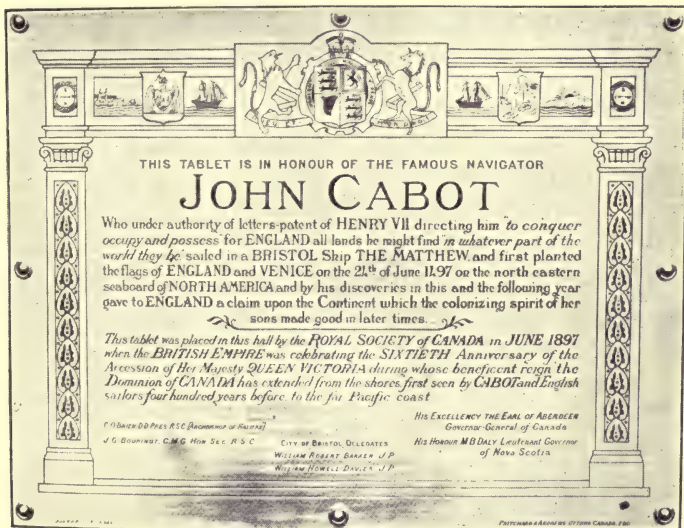 THIS TABLET IS IN HONOUR OF THE FAMOUS NAVIGATOR
JOHN CABOT
Who under authority of letters-patent of HENRY VII directing him "to conquer
occupy and possess" for ENGLAND all lands he might find "in whatever part of the
world they be" sailed in a BRISTOL Ship THE MATTHEW, and first planted
the flags of ENGLAND and VENICE on the 24th of June 1497 on the north eastern
seaboard of NORTH AMERICA and by his discoveries in this and the following year
gave to ENGLAND a claim upon the Continent which the colonizing spirit of her
sons made good in later times.
This tablet was placed in this hall by the ROYAL SOCIETY of CANADA in JUNE 1897
when the BRITISH EMPIRE was celebrating the SIXTIETH Anniversary of the
Accession of Her Majesty QUEEN VICTORIA during whose beneficent reign the
Dominion of CANADA has extended from the shores first seen by CABOT and English
sailors four hundred years before to the far Pacific coast
C O'BRIEN D D PRES R S C [ARCHBISHOP OF HALIFAX]
J G BOURINOT, C.M.G HON SEC R S C
CITY OF BRISTOL DELEGATES
WILLIAM ROBERT BARKER J P
WILLIAM HOWELL DAVIES J P
HIS EXCELLENCY THE EARL OF ABERDEEN
Governor-General of Canada
HIS HONOUR M B DALY Lieutenant Governor
of Nova Scotia
PRITCHARD & ANDREWS OTTAWA CANADA